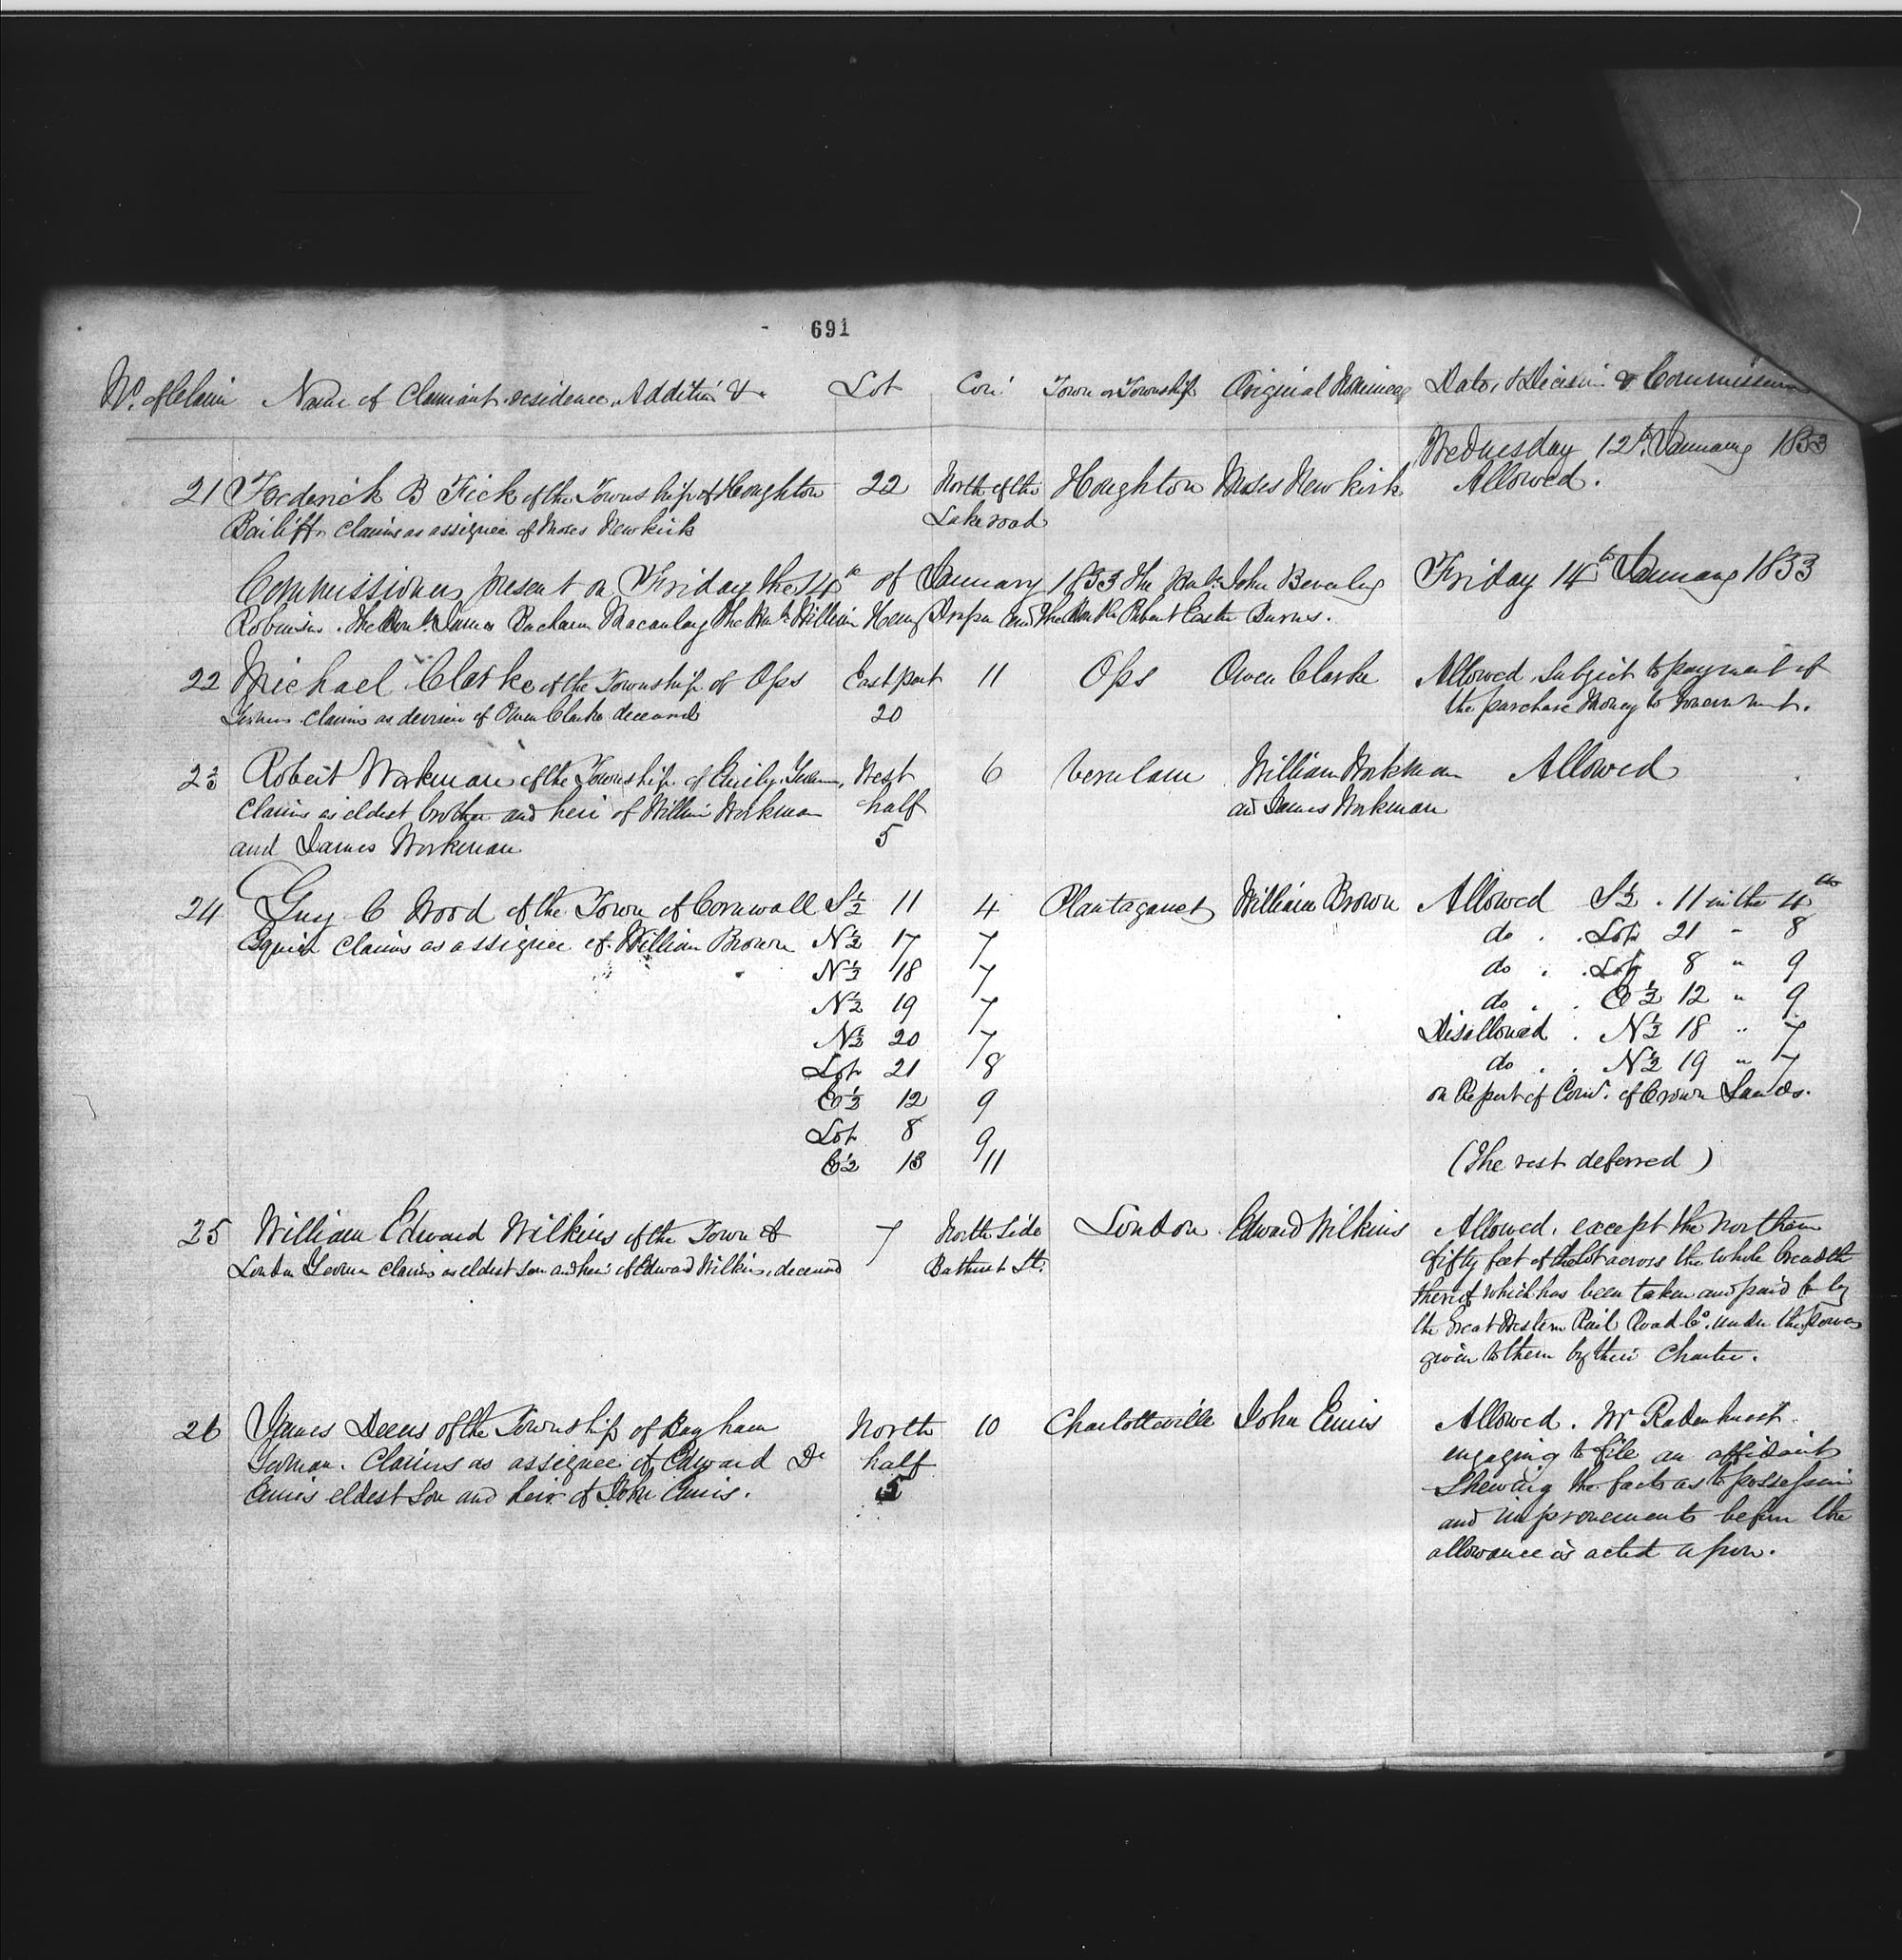 691
No. of Claim Name of Claimant residence, Addition &c. Lot Con: Town or Township Original Nominee Date, & Decision & Commissioners
Wednesday 12th January 1853
21 Frederick B Fick of the Township of Houghton 22 North of the Houghton Moses Newkirk Allowed.
Bailiff, claims as assignee of Moses Newkirk Lake road
Commissioners present on Friday the 14th of January 1853 The Honble John Beverley Friday 14th January 1853
Robinson. The Honble James Buchanan Macaulay The Honble William Henry Draper and The Honble Robert Easton Burns.
22 Michael Clarke of the Township of Ops East part 11 Ops Owen Clarke Allowed, Subject to payment of
Yeoman claims as devisee of Owen Clarke deceased 20 the purchase Money to Government.
23 Robert Workman of the Township of Emily Yeoman, West 6 Verulam William Workman Allowed
Claims as eldest brother and heir of William Workman half and James Workman
and James Workman 5
24 Guy C Wood of the Town of Cornwall S½ 11 4 Plantaganet William Brown Allowed S½ . 11 in the 4th
Esquire claims as assignee of William Brown N½ 17 7 do . . Lot 21 " 8
N½ 18 7 do . . Lot 8 " 9
N½ 19 7 do . . E½ 12 " 9
N½ 20 7 Disallowed . N½ 18 " 7
Lot 21 8 do . . N½ 19 " 7
E½ 12 9 on Report of Comr. of Crown Lands.
Lot 8 9
E½ 13 11 (The rest deferred)
25 William Edward Wilkins of the Town of 7 North Side London Edward Wilkins Allowed, except the Northern
London Yeoman claims as eldest son and heir of Edward Wilkins, deceased Bathurst St. fifty feet of the Lot across the whole breadth
thereof which has been taken and paid for by
the Great Western Rail Road Co. under the powers
given to them by their Charter.
26 James Deens of the Township of Bayham North 10 Charlotteville John Emis Allowed. Mr Radenhurst
Yeoman. Claims as assignee of Edward D. half engaging to file an affidavit
Emis eldest Son and heir of John Emis. 5 Shewing the facts as to possession
and improvements before the
allowance is acted upon.